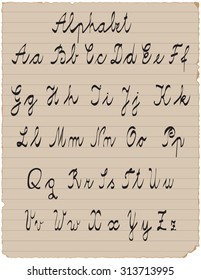 Alphabet
Aa Bb Cc Dd Ee Ff
Gg Hh Ii Jj Kk
Ll Mm Nn Oo Pp
Qq Rr Ss Tt Uu
Vv Ww Xx Yy Zz
shutterstock.com · 313713995